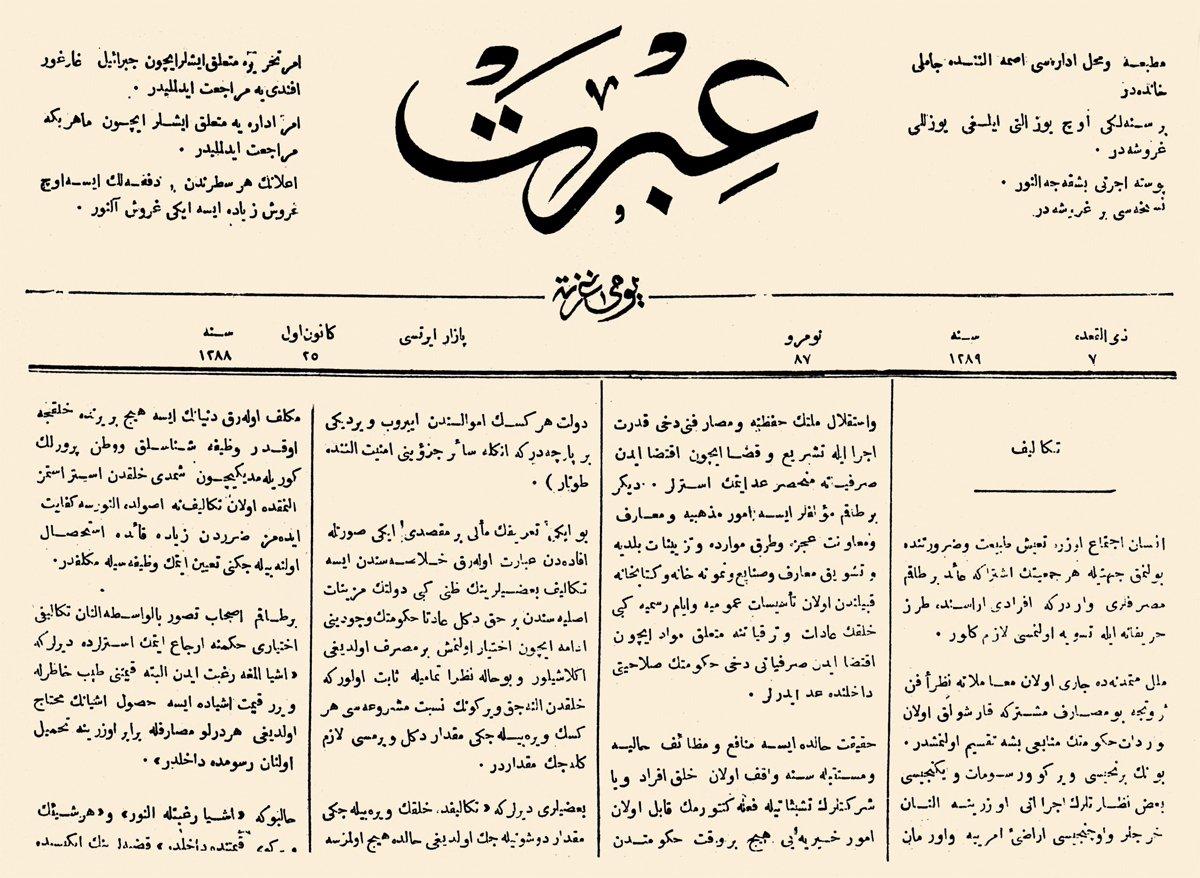 مطبعه ومحل اداره‌سی اصمه التنده جاملی
خانده‌در
بر سنه‌لكی اوچ یوز التی ایلغی یوز اللی
غروشه‌در ٠
پوسته اجرتی بشقه‌جه النور ٠
نسخه‌سی بر غروشه‌در
عبرت
امر تحریره متعلق ایشلر ایچون جبرائیل غارغور
افندی‌یه مراجعت ایدلملیدر ٠
امر اداره‌یه متعلق ایشلر ایچون ماهر بكه
مراجعت ایدلملیدر ٠
اعلانك هر سطرندن بر دفعه‌لك ایسه اوچ
غروش زیاده ایسه ایكی غروش آلنور ٠
یومی غزته
ذی القعده سنه نومرو پازار ایرتسی كانون اول سنه
٧ ١٢٨٩ ٨٧ ٢٥ ١٢٨٨
تكالیف
انسان اجتماع اوزره تعیش طبیعت وضرورتنده
بولنمق جهتیله هر جمعیتك اشتراكه عائد بر طاقم
مصرفلری واردركه افرادی اراسنده طرز
حریفانه ایله تسویه اولنمسی لازم كلور ٠
ملل متمدنه‌ده جاری اولان معاملاته نظراً فن
ثروتجه بو مصارف مشتركه قارشولق اولان
واردات حكومتك منابعی بشه تقسیم اولنمشدر ٠
بونك برنجیسی ویركو ورسومات وایكنجیسی
بعض نظارتلرك اجراآتی اوزرینه النان
خرجلر واوچنجیسی اراضئ امریه واورمان
واستقلال ملتك حفظیله ومصارفنی دخی قدرت
اجرا ایله تشریع وقضا ایچون اقتضا ایدن
صرفیاته منحصر عد ایتمك استرلر ٠٠ دیكر
بر طاقم مؤلفلر ایسه امور مذهبیه ومعارف
ومعاونت عجزه وطرق وموارده وتزیینات بلدیه
وتشویق معارف وصنایع ونمونه خانه وكتابخانه
قبیلندن اولان تأسیسات عمومیه وایام رسمیه كبی
خلقك عادات وترقیاتنه متعلق مواد ایچون
اقتضا ایدن صرفیاتی دخی حكومتك صلاحیتی
داخلنده عد ایدرلر ٠
حقیقت حالده ایسه منافع ووظائف حالیه
ومستقبله‌سنه واقف اولان خلق افراد ویا
شركتلرك تشبثاتیله فعله كتورمك قابل اولان
امور خیریه‌یی هیچ بر وقت حكومتدن
دولت هر كسك اموالندن آییروب ویردیكی
بر پارچه‌دركه انكله سائر جزؤینی امنیت التنده
طوتار) ٠
بو ایكی تعریفك مألی بر مقصدی ایكی صورتله
افاده‌دن عبارت اوله‌رق خلاصه‌سندن ایسه
تكالیف بعضیلرینك ظنی كبی دولتك مزیتات
اصلیه‌سندن بر حق دكل عادتا حكومتك وجودینی
ادامه ایچون اختیار اولنمش بر مصرف اولدیغی
اكلاشیلور وبو حاله نظرا تمامیله ثابت اولوركه
خلقدن النه‌جق ویركونك نسبت مشروعه‌سی هر
كسك ویره‌بیله‌جكی مقدار دكل ویرمسی لازم
كله‌جك مقداردر ٠
بعضیلری دیرلركه «تكالیفده خلقك ویره‌بیله‌جكی
مقدار دوشونیله‌جك اولدیغی حالده هیچ اولمزسه
مكلف اوله‌رق دنیانك ایسه هیچ بر یرنده خلقنجه
اوقدر وظیفه شناسلق ووطن پرورلك
كوریله‌مدیكیچون شمدی خلقدن استر استمز
النمقده اولان تكالیف نه اصولده النورسه كفایت
ایده‌من ضرردن زیاده فائده استحصال
اولنه‌بیله‌جكنی تعیین ایتمك وظیفه‌سیله مكلفدر.
بر طاقم اصحاب تصور بالواسطه النان تكالیفی
اختیاری حكمنه ارجاع ایتمك استرلرده دیرلركه
«اشیا المغه رغبت ایدن البته قیمتنی طیب خاطرله
ویرر قیمت اشیاده ایسه حصول اشیانك محتاج
اولدیغی هر درلو مصارفله برابر اوزرینه تحمیل
اولنان رسومده داخلدر» ٠
حالبوكه «اشیا رغبتله النور» و«هر شیئك
ویركو قیمتنده داخلدر» قضیه‌لرینك ایكیسنده